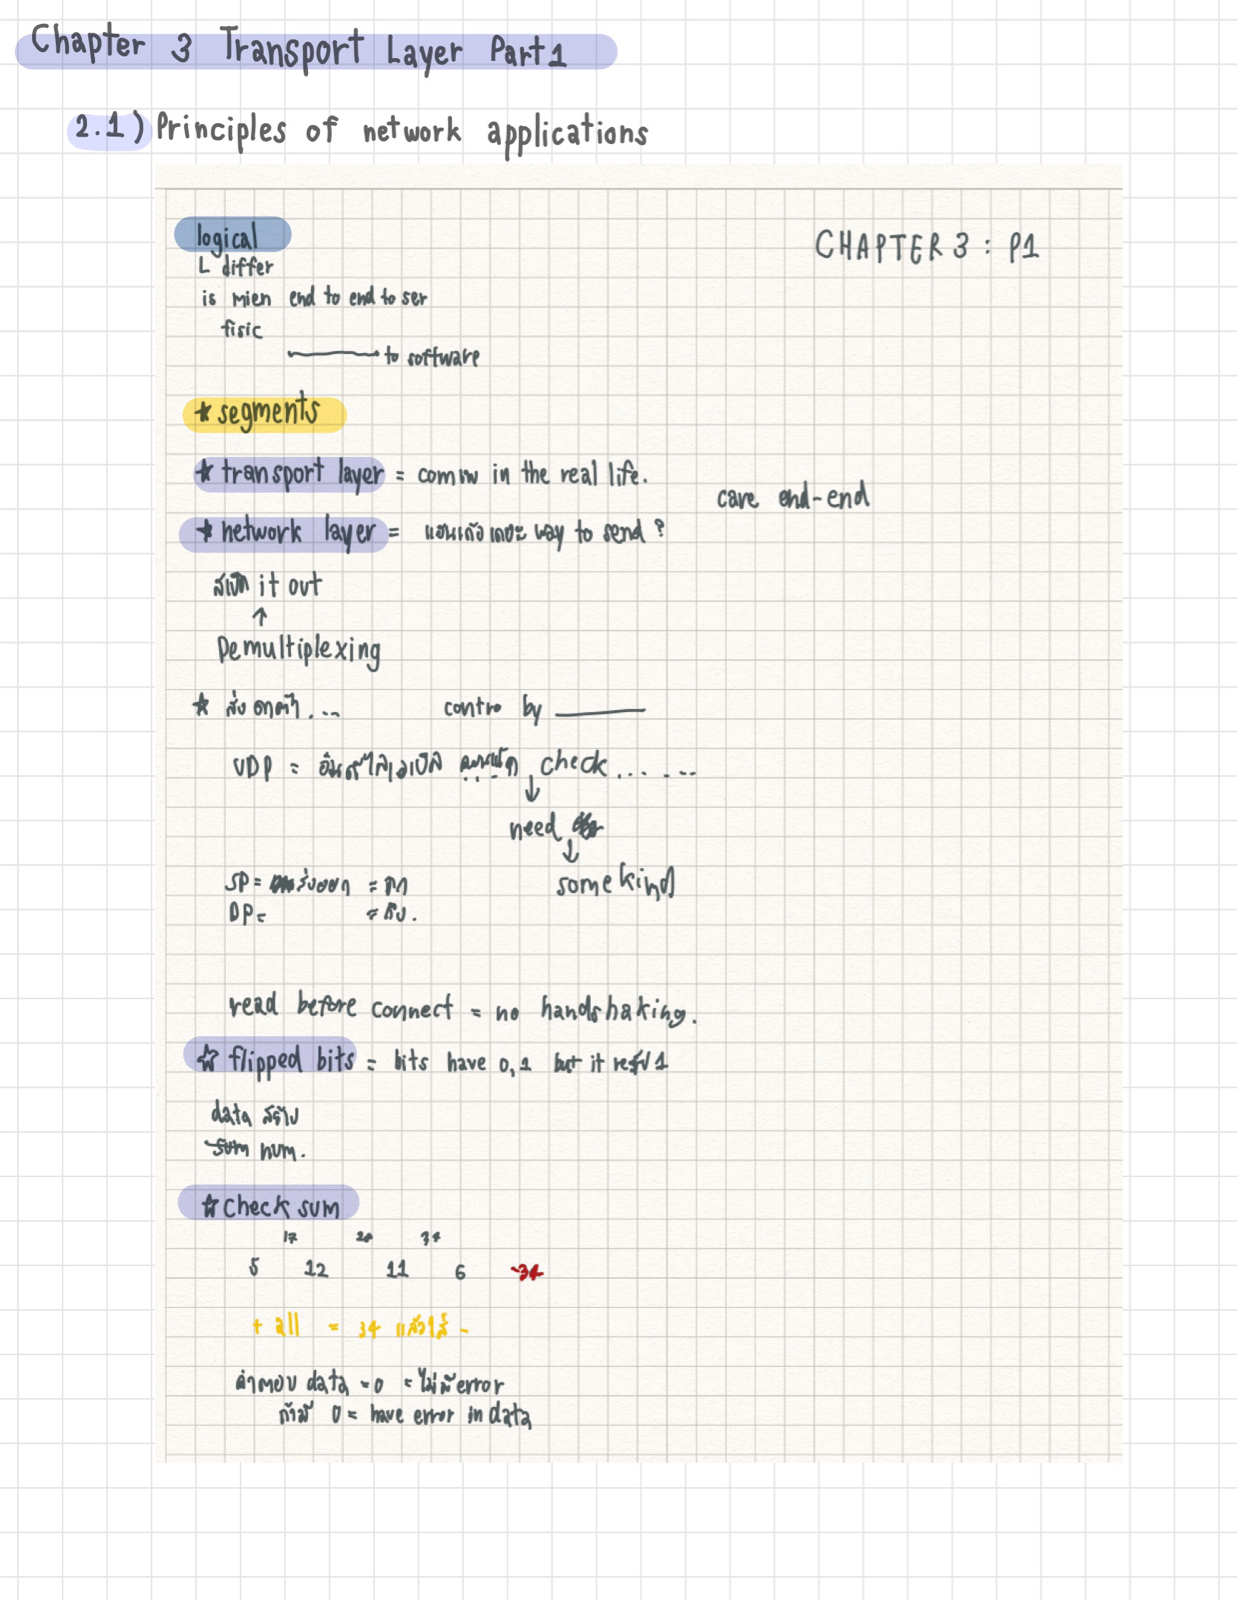 Chapter 3 Transport Layer Part1
2.1) Principles of network applications
logical
CHAPTER 3 : P1
L differ
is mien end to end to ser
fisic
to software
★ segments
★ transport layer = in the real life.
care end-end
★ network layer = way to send ?
it out
↑
Demultiplexing
★ ส่ง ... contro by
UDP = check . . . . . .
↓
need
↓
some kind
SP = =
DP= = ถึง.
read before connect = no handshaking.
☆ flipped bits = bits have 0,1 but it 1
data
sum num.
☆ check sum
17 28 34
5 12 11 6 -34
+ all = 34 แล้วใส่ -
คำตอบ data = 0 = ไม่มี error
ถ้ามี 0 = have error in data